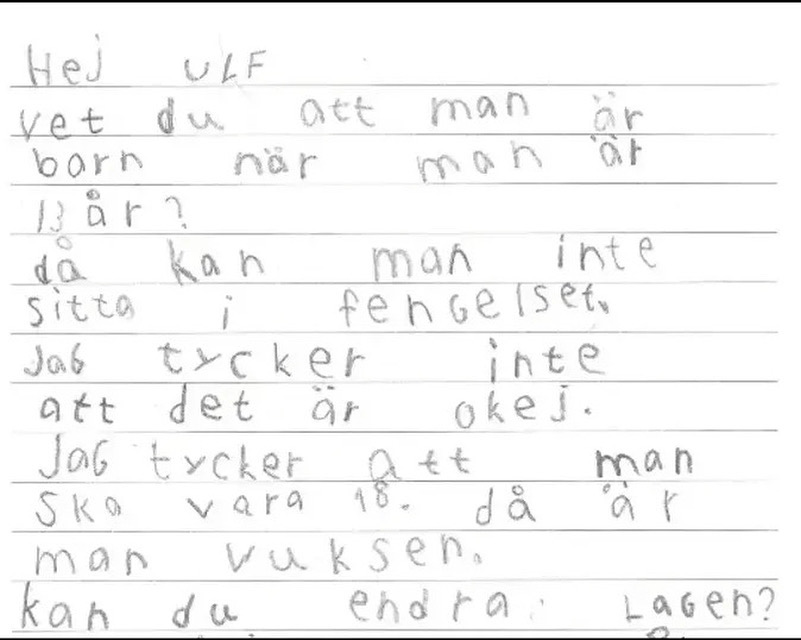 Hej ULF
vet du att man är
barn när man är
13 år?
då kan man inte
sitta i fengelset.
Jag tycker inte
att det är okej.
Jag tycker att man
ska vara 18. då är
man vuksen.
kan du endra Lagen?